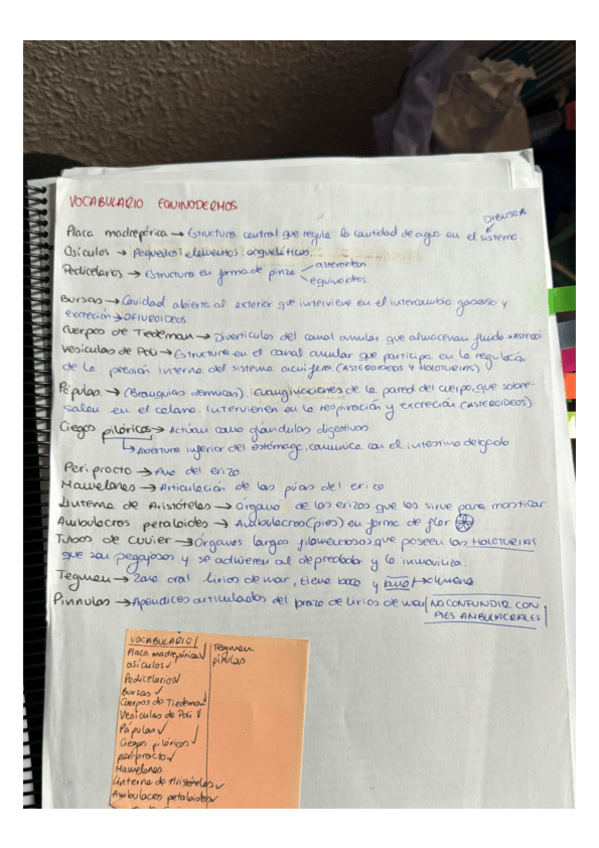 VOCABULARIO EQUINODERMOS
DIBUJAR
Placa madrepórica → Estructura central que regula la cantidad de agua en el sistema.
Osículos → Pequeños elementos esqueléticos.
Pedicelarios → Estructura en forma de pinza asteroideos
equinoideos.
Bursas → Cavidad abierta al exterior que interviene en el intercambio gaseoso y
excreción → OFIUROIDEOS
Cuerpos de Tiedeman → Divertículos del canal anular que almacenan fluido →
Vesículas de Poli → Estructura en el canal anular que participa en la regulación
de la presión interna del sistema acuífero (ASTEROIDEOS Y HOLOTURIAS)
Pápulas → (Branquias dérmicas). Evaginaciones de la pared del cuerpo, que sobre-
salen en el celoma. Intervienen en la respiración y excreción (ASTEROIDEOS)
Ciegos pilóricos → Actúan como glándulas digestivas
↳ Abertura inferior del estómago, comunica con el intestino delgado
Periprocto → Ano del erizo
Mamelones → Articulación de las púas del erizo
Linterna de Aristóteles → Órgano de los erizos que les sirve para masticar.
Ambulacros petaloides → Ambulacros (pies) en forma de flor
Tubos de cuvier → Órganos largos filamentosos que poseen las HOLOTURIAS
que son pegajosos y se adhieren al depredador y lo inmoviliza.
Tegmen → Zona oral lirios de mar, tiene boca y
Pinnulas → Apendices articulados del brazo de lirios de mar NO CONFUNDIR CON
PIES AMBULACRALES
VOCABULARIO
Placa madrepórica ✓
osículos ✓
Pedicelarios ✓
Bursas ✓
Cuerpos de Tiedeman ✓
Vesículas de Poli ✓
Pápulas ✓
Ciegos pilóricos ✓
periprocto ✓
Mamelones
Linterna de Aristóteles ✓
Ambulacros petaloides ✓
Tegmen
pínulas